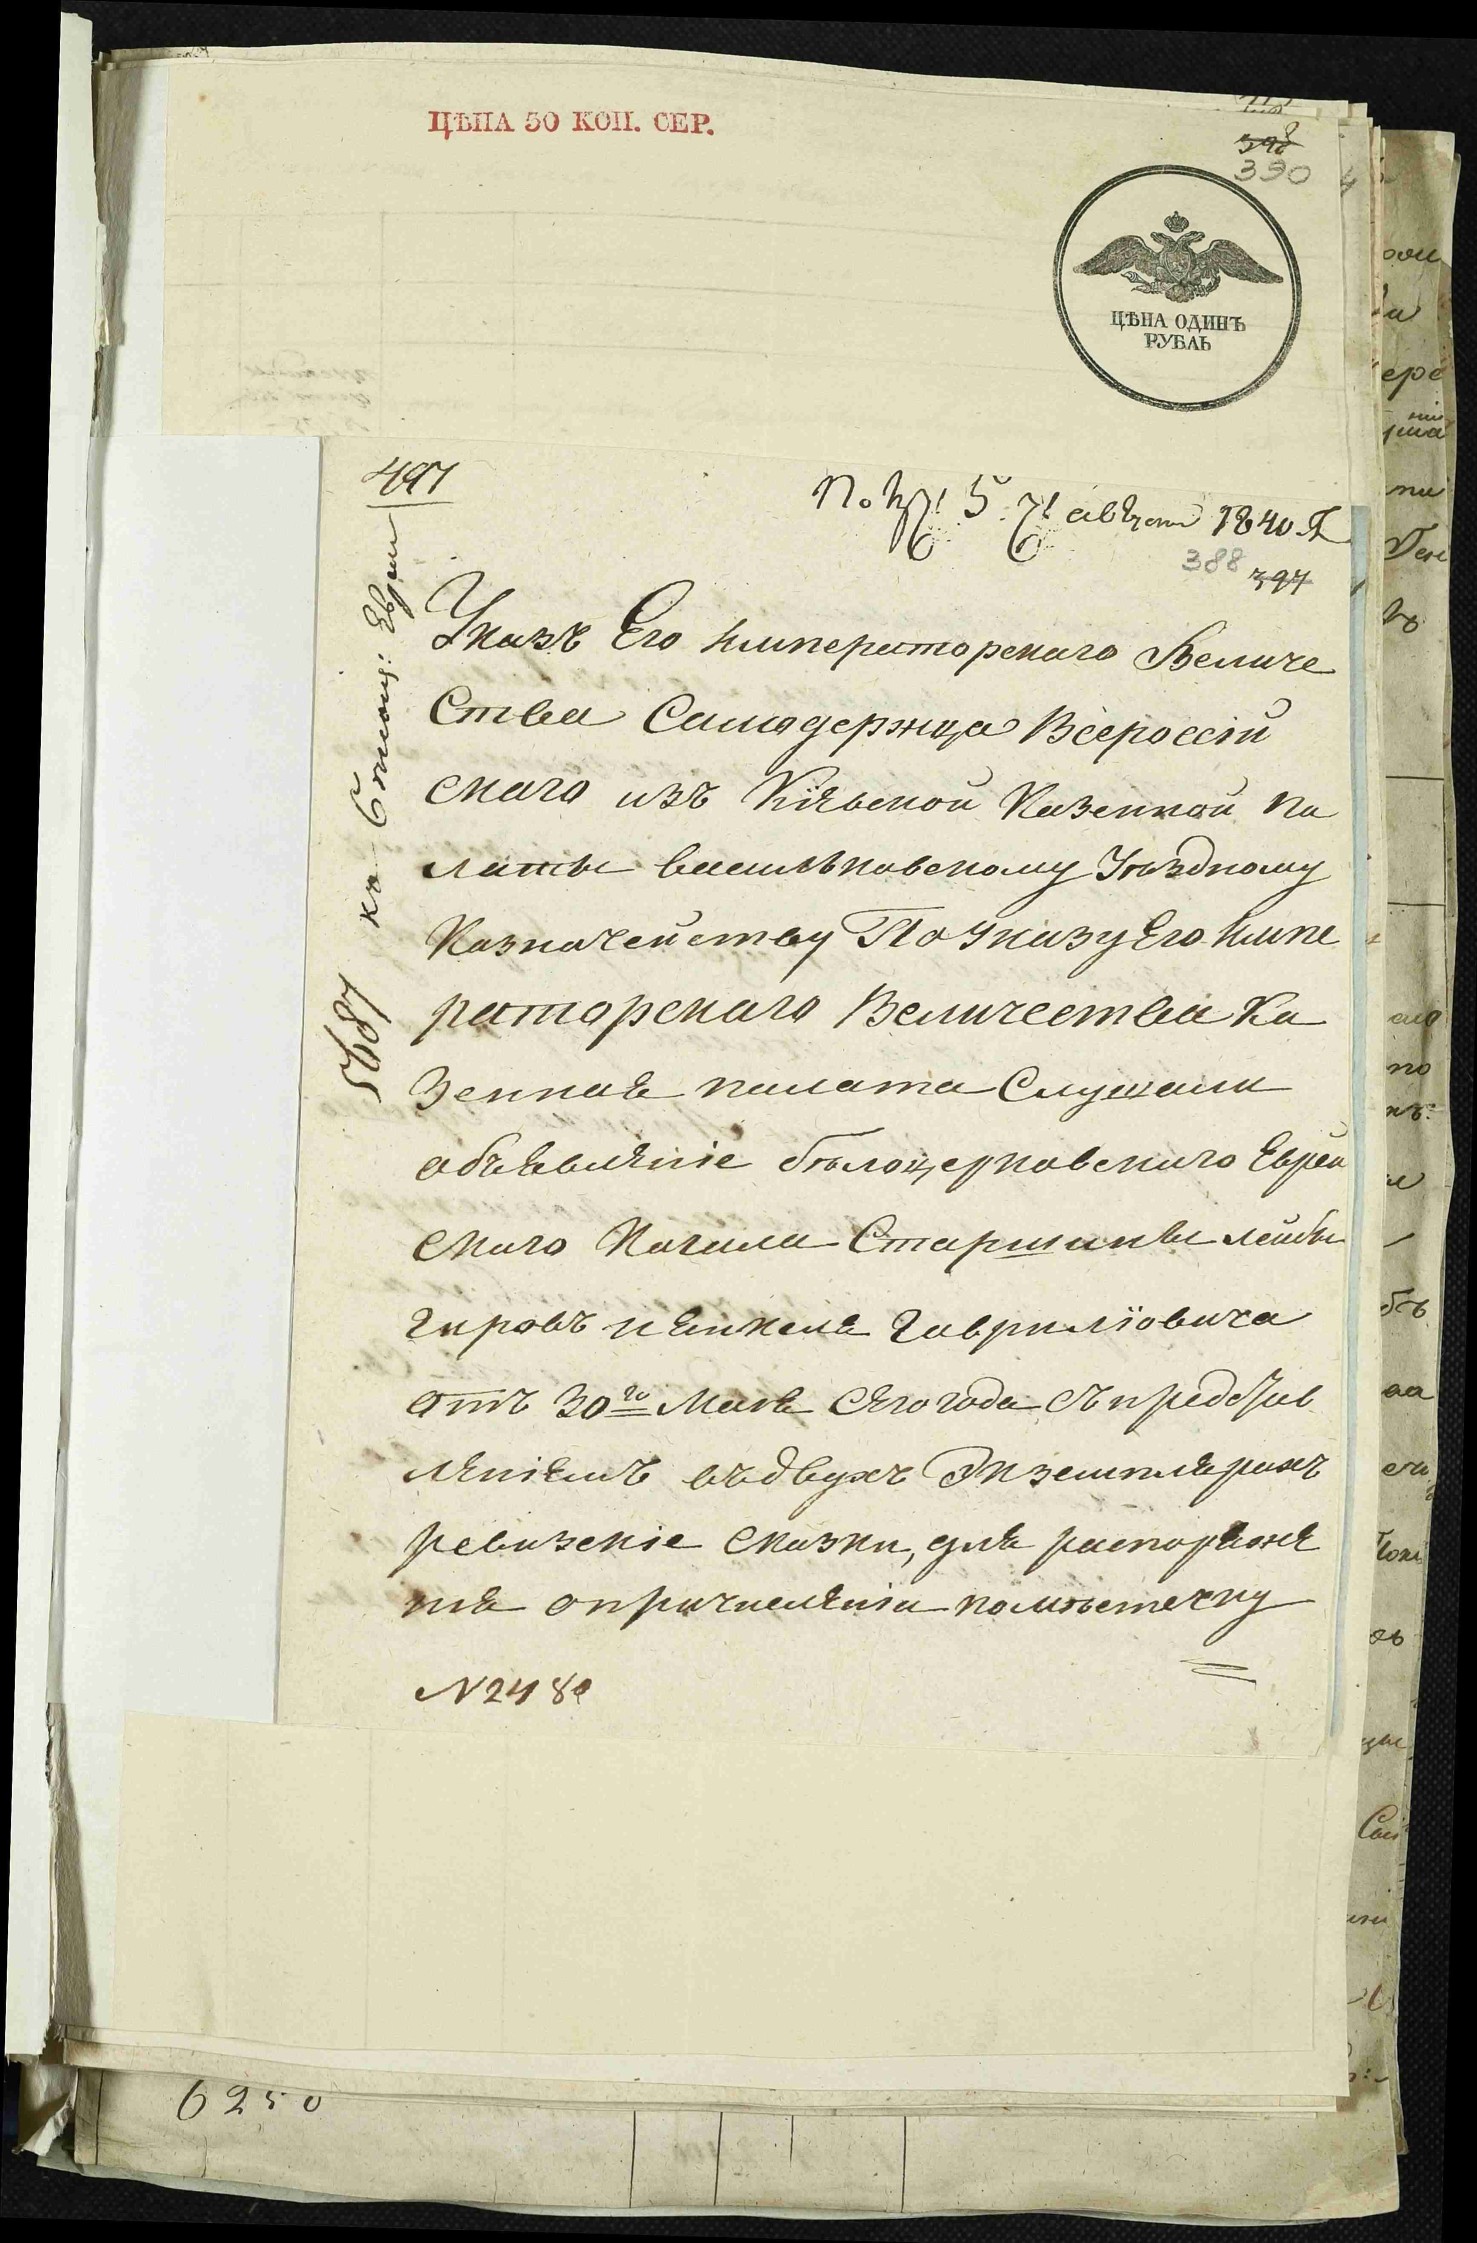 ЦѢНА 50 КОП. СЕР.
398
390
ЦѢНА ОДИНЪ
РУБЛЬ
497
Пол: 5. Августа 1840 Г
388 397
Указъ Его Императорскаго Величе
Ства Самодержца Всероссій
скаго изъ Кіевской Казенной Па
латы Васильковскому Уѣздному
Казначейству По Указу Его Импе
раторскаго Величества Ка
Зенная палата Слушали
объявленіе бѣлоцерковскаго Еврей
скаго Кагала Старшины Лейбы
отъ 30го Мая сего года съ представ
леніемъ въ двухъ Экземплярахъ
ревизскіе сказки, для распоряже
нія о причисленіи по мѣстечку
N 2480
5687
6250